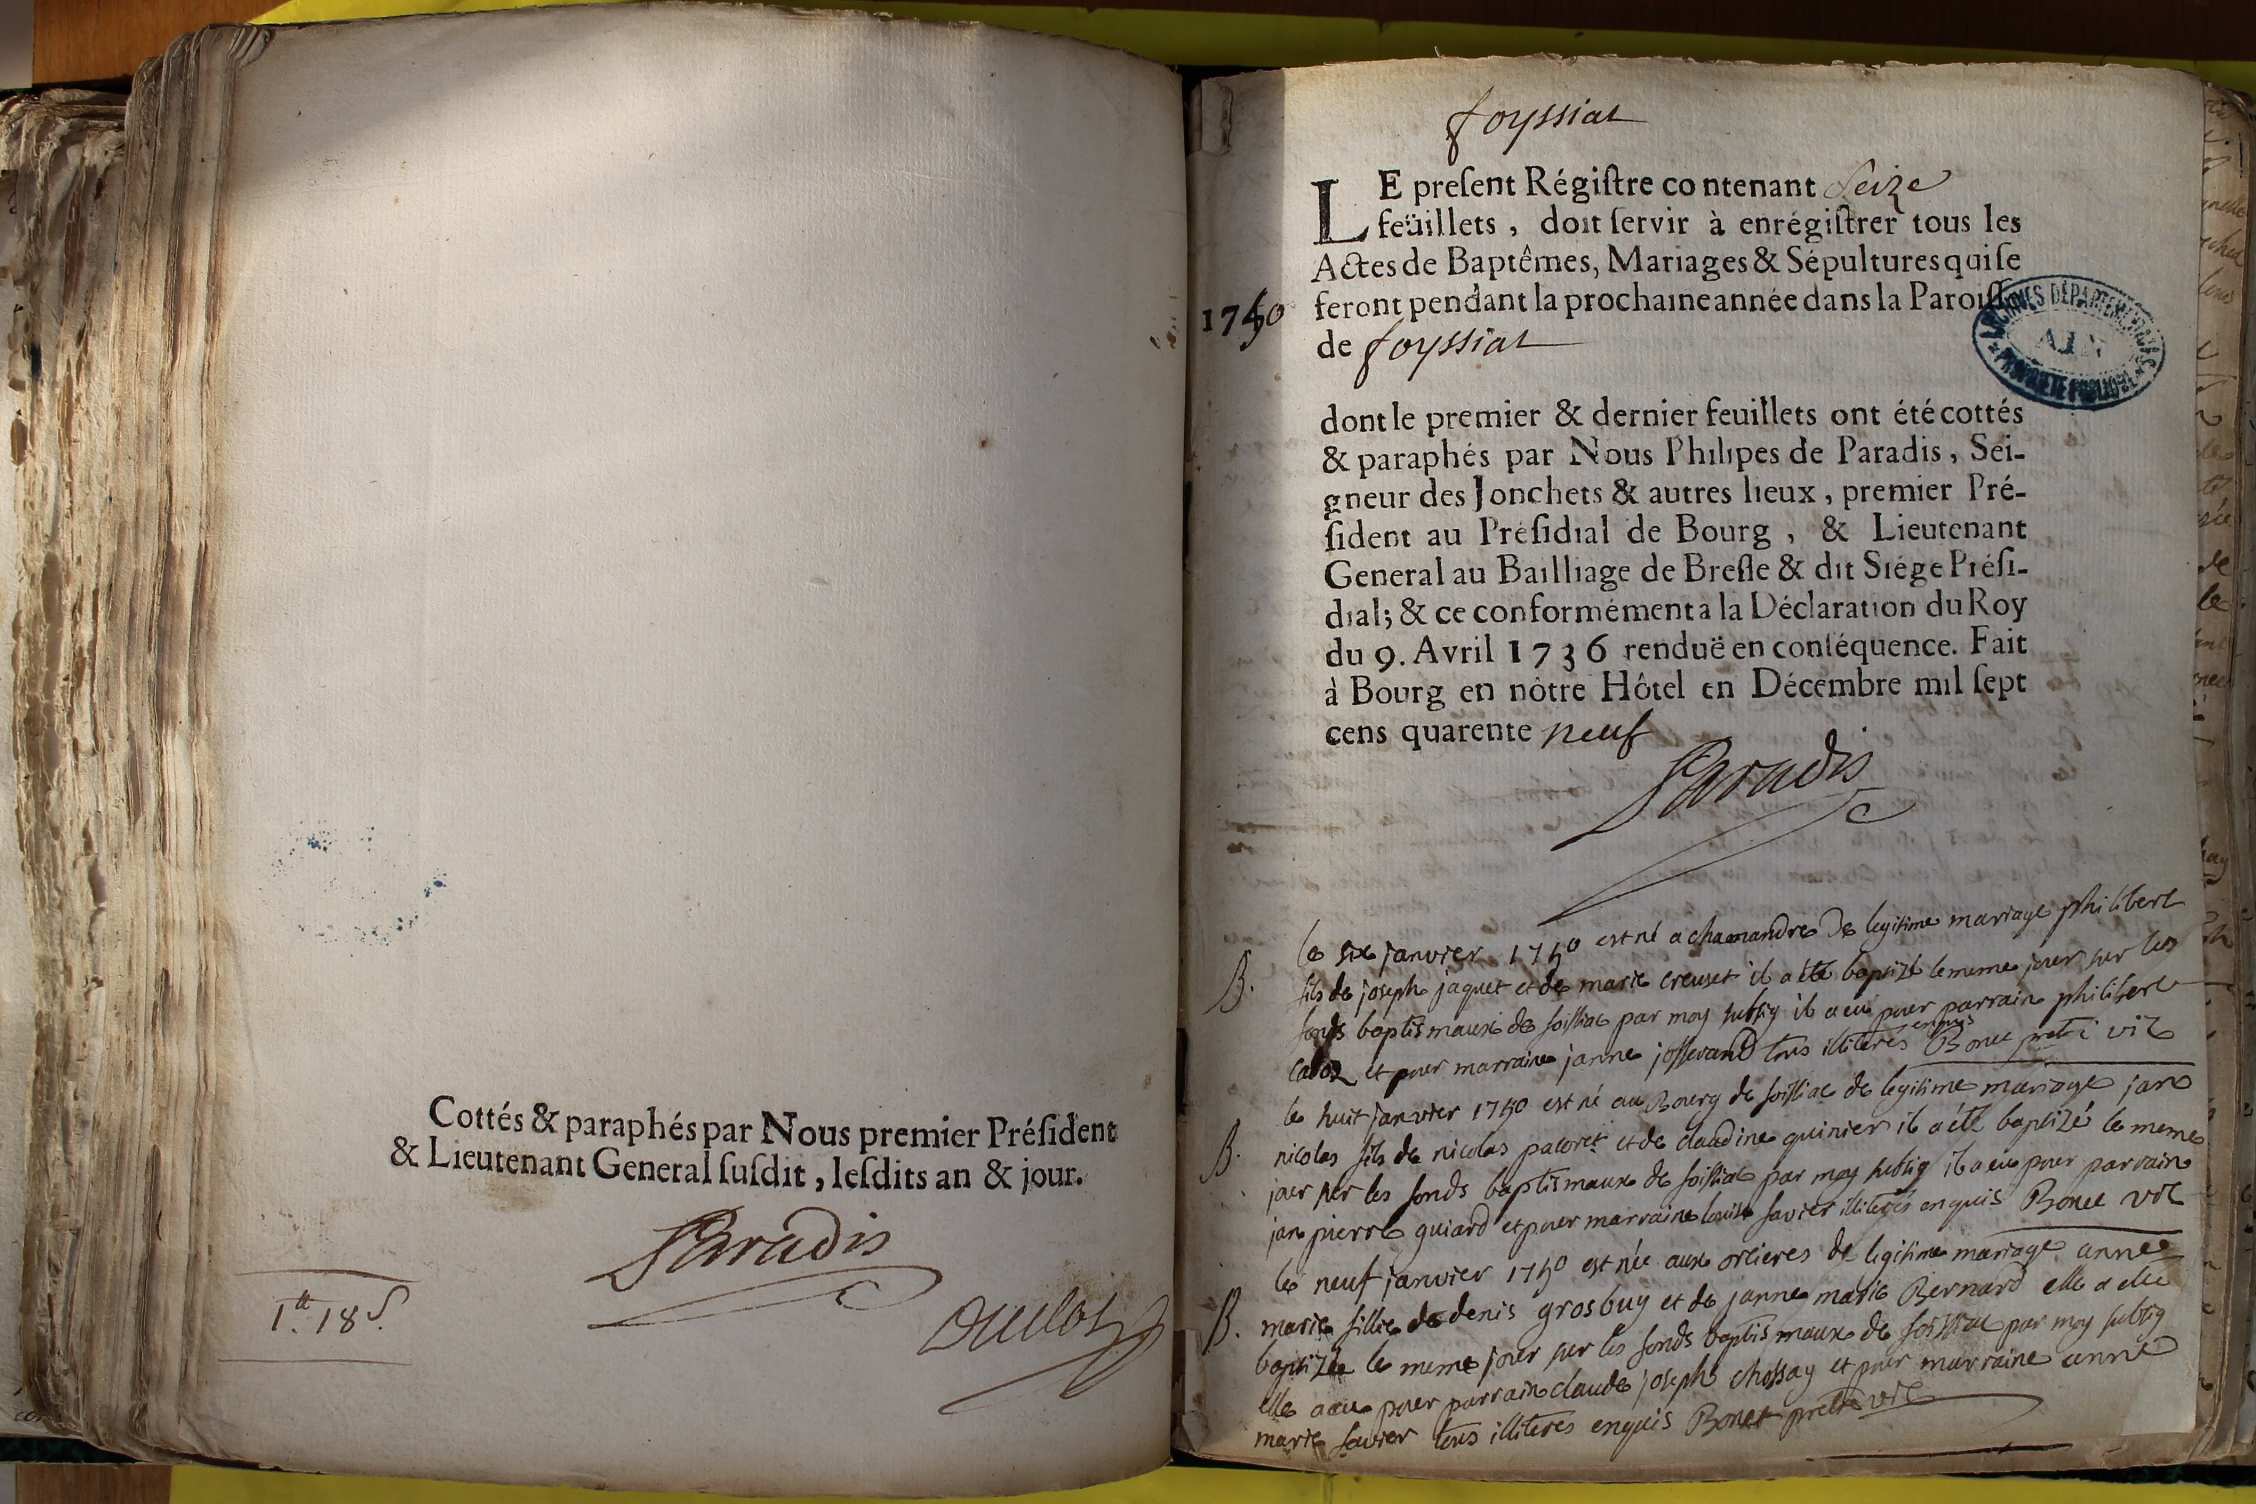 Cottés & paraphés par Nous premier Préſident
& Lieutenant General ſuſdit, leſdits an & jour.
Paradis
1.tt 18 s.
foyssiat
LE preſent Régiſtre contenant Seize
feüillets, doit ſervir à enrégiſtrer tous les
Actes de Baptêmes, Mariages & Sépultures qui ſe
1750
feront pendant la prochaine année dans la Paroiſſe
de foyssiat
ARCHIVES DÉPARTEMENTALES
AIN
PROPRIÉTÉ PUBLIQUE
dont le premier & dernier feuillets ont été cottés
& paraphés par Nous Philipes de Paradis, Sei-
gneur des Jonchets & autres lieux, premier Pré-
ſident au Préſidial de Bourg, & Lieutenant
General au Bailliage de Breſſe & dit Siége Préſi-
dial; & ce conformément a la Déclaration du Roy
du 9. Avril 1736 renduë en conſéquence. Fait
à Bourg en nôtre Hôtel en Décembre mil ſept
cens quarente neuf
Paradis
le six janvier 1750 est né a chamandre de legitime mariage philibert
B.
fils de joseph jaquet et de marie creuset il a été baptizé le meme jour sur les
fonds baptismaux de foissiat par moy subsig il a eu pour parrain philibert
et pour marraine janne josserand tous illiteres enquis Bonet pretre vic
le huit janvier 1750 est né au Bourg de foissiat de legitime mariage jan
B.
nicolas fils de nicolas pacoret et de claudine quinier il a été baptizé le meme
jour sur les fonds baptismaux de foissiat par moy subsig il a eu pour parrain
jan pierre guiard et pour marraine louise favier illiterés enquis Bonet vic
le neuf janvier 1750 est née aux orcieres de legitime mariage anne
B.
marie fillie de denis grosbuy et de janne marie Bernard elle a eté
baptizée le meme jour sur les fonds baptismaux de foissiat par moy subsig
elle a eu pour parrain claude joseph chossay et pour marraine anne
marie favier tous illiteres enquis Bonet pretre vic